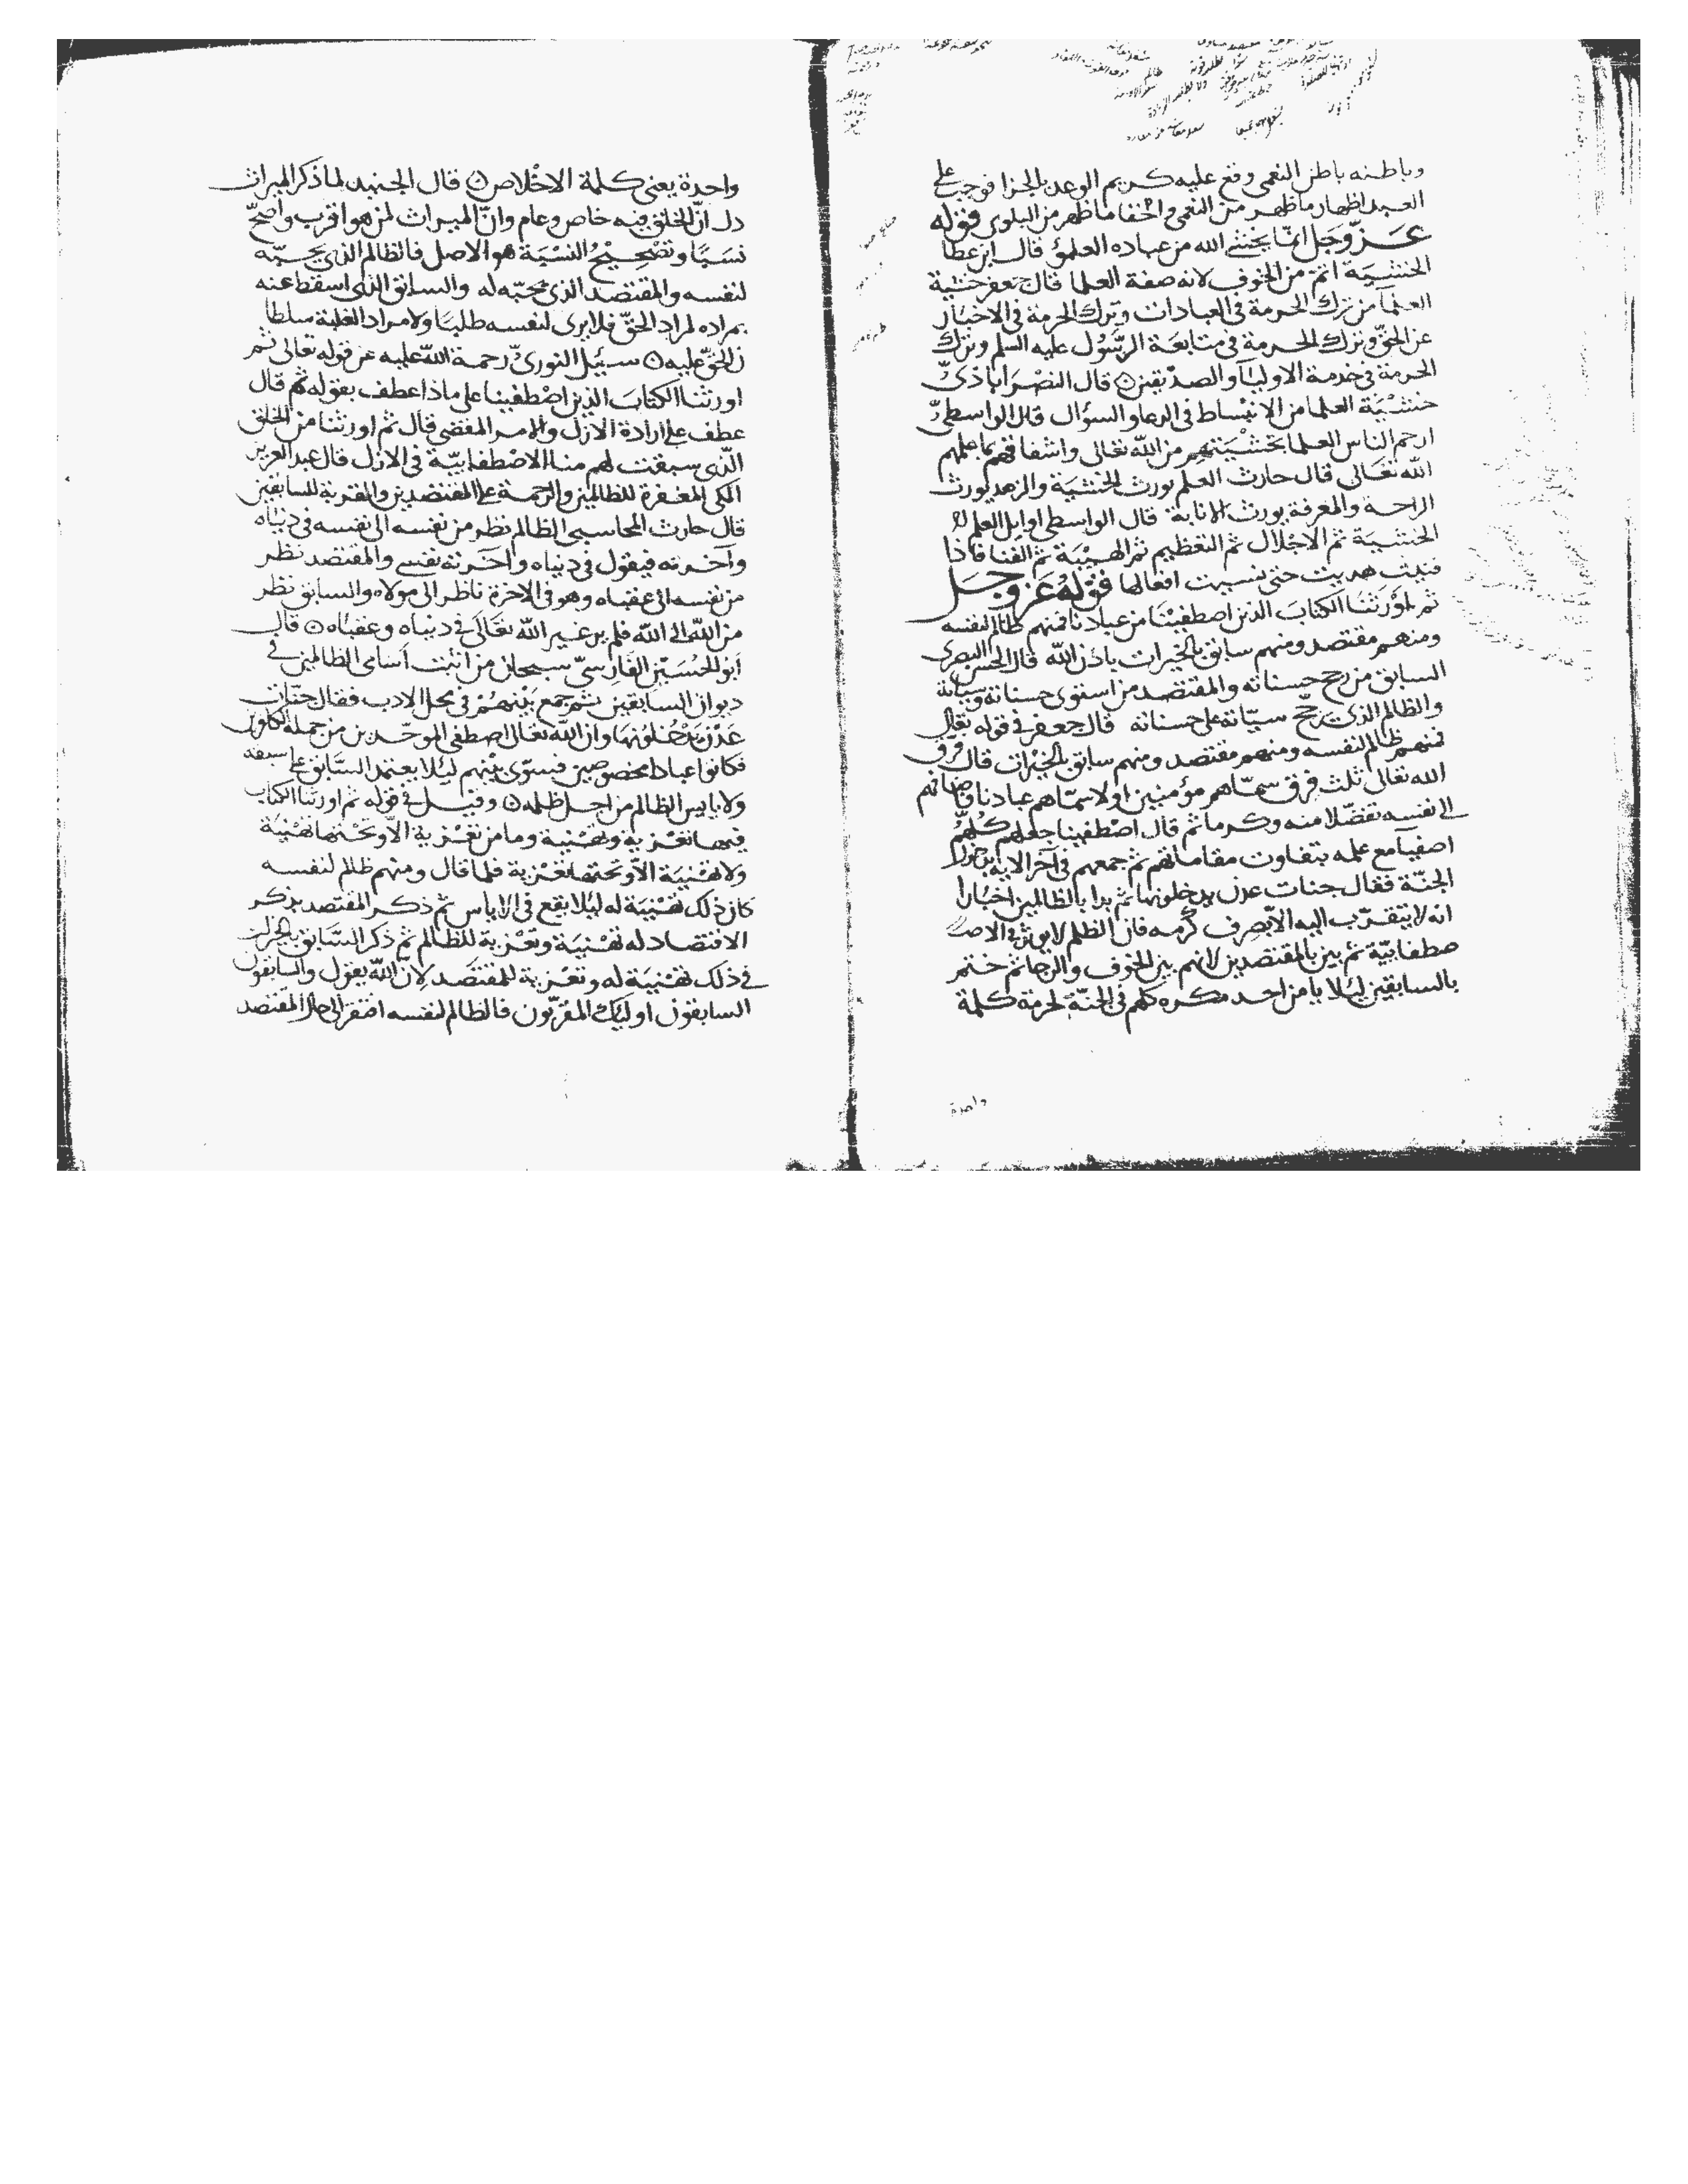 وباطنه باطن النعمى وقع عليه كريم الوعد بالجزا فوجب على
العبد اظهار ما ظهر من النعمى واخفا ما ظهر من البلوى قوله
عز وجل انما يخشى الله من عباده العلمؤ قال ابن عطا
الخشية اتم من الخوف لانه صفة العلما قال جعفر خشية
العلما من ترك الحرمة في العبادات وترك الحرمة في الاخبار
عن الحق وترك الحرمة في متابعة الرسول عليه السلم وترك
الحرمة في خدمة الاوليآ والصديقين قال النصراباذي
خشية العلما من الانبساط في الدعا والسؤال قال الواسطي
ارحم الناس العلما بخشيتهم من الله تعالى واشفاقهم مما علمهم
الله تعالى قال حارث العلم يورث الخشية والزهد يورث
الراحة والمعرفة يورث الانابة قال الواسطي اوايل العلم
الخشية ثم الاجلال ثم التعظيم ثم الهيبة ثم الفنا فاذا
فنيت هديت حتى نسيت افعالها قوله عز وجل
ثم اورثنا الكتاب الذين اصطفينا من عبادنا فمنهم ظالم لنفسه
ومنهم مقتصد ومنهم سابق بالخيرات باذن الله قال الحسن البصري
السابق من رجح حسناته والمقتصد من استوى حسناته وسياته
والظالم الذي ترجح سيّاته على حسناته قال جعفر في قوله تعالى
فمنهم ظالم لنفسه ومنهم مقتصد ومنهم سابق بالخيرات قال فرّق
الله تعالى ثلث فرق سمّاهم مؤمنين اولا سمّاهم عبادنا فاضافهم
الى نفسه تفضّلا منه وكرما ثم قال اصطفينا جعلهم كلهم
اصفيآ مع علمه بتفاوت مقاماتهم ثم جمعهم في آخر الاية بدخول
الجنّة فقال جنات عدن يدخلونها ثم بدا بالظالمين اخبارا
انه لا يتقرّب اليه الا بصرف كرمه فان الظلم لا يوثر في الاصـ
صطفاييّة ثم بين بالمقتصدين لانهم بين الخوف والرجا ثم ختم
بالسابقين ليلا يامن احد مكره كلهم في الجنّة لحرمة كلمة
واحدة
واحدة يعني كلمة الاخلاص قال الجنيد لما ذكر الميراث
دل انّ الخلق فيه خاص وعام وانّ الميراث لمن هو اقرب واصحّ
نسبًا وتصحيح النسبة هو الاصل فالظالم الذي يحبّه
لنفسه والمقتصد الذي يحبّه له والسابق الذي اسقط عنه
بمراده لمراد الحقّ فلا يرى لنفسه طلبا ولا مراد الغلبة سلطا
ن الحقّ عليه سيل النوريّ رحمة الله عليه عن قوله تعالى ثم
اورثنا الكتاب الذين اصطفينا على ماذا عطف بقوله ثم قال
عطف على ارادة الازل والامر المقضي قال ثم اورثنا من الخلق
الّذي سبقت لهم منا الاصطفاييّة في الازل قال عبد العزيز
المكي المغفرة للظالمين والرحمة على المقتصدين والقربة للسابقين
قال حارث المحاسبي الظالم نظر من نفسه الى نفسه في دنياه
وآخرته فيقول في دنياه وآخرته نفسي والمقتصد نظر
من نفسه الى عقباه وهو في الاخرة ناظر الى مولاه والسابق نظر
من الله الى الله فلم ير غير الله تعالى في دنياه وعقباه قال
ابو الحسين الفارسيّ سبحان من اثبت اسامى الظالمين في
ديوان السابقين ثم جمع بينهم في محل الادب فقال جنات
عدن يدخلونها وان الله تعالى اصطفى الموحّدين من جملة الكافرين
فكانوا عبادا مخصوصين فسوّى بينهم ليلا يعتمد السّابق على سبقه
ولا يايس الظالم من اجل ظلمه وقيل في قوله ثم اورثنا الكتاب
فيها تعزية وتهنية وما من تعزية الّا وتحتها تهنية
ولا تهنية الّا وتحتها تعزية فلما قال ومنهم ظالم لنفسه
كان ذلك تهنية له ليلا يقع في الاياس ثم ذكر المقتصد بذكر
الاقتصاد له تهنية وتعزية للظالم ثم ذكر السّابق بالخيرات
في ذلك تهنية له وتعزية للمقتصد لانّ الله يقول والسابقون
السابقون اوليك المقرّبون فالظالم لنفسه افتقر الى حال المقتصد